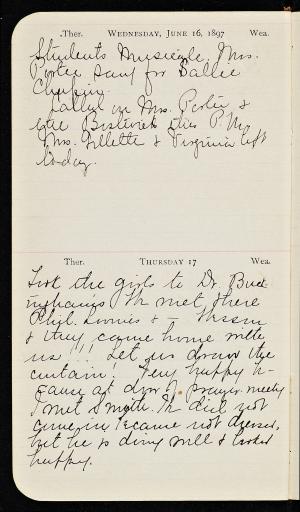 Ther. WEDNESDAY, JUNE 16, 1897 Wea.
Students Musicale. Mrs.
Porter sang for Sallie
Chapin.
Called on Mrs. Porter &
the Bostwicks this P.M.
Mrs. Gillette & Virginia left
today.
Ther. THURSDAY 17 Wea.
Took the girls to Dr. Buck
inghams. We met there
Phil. Loomis & —
& they came home with
us!!! Let us draw the
curtain! Very happy be-
cause at door of prayer meeting
I met Smith. He did not
come in because not dressed,
but he is doing well & looked
happy.